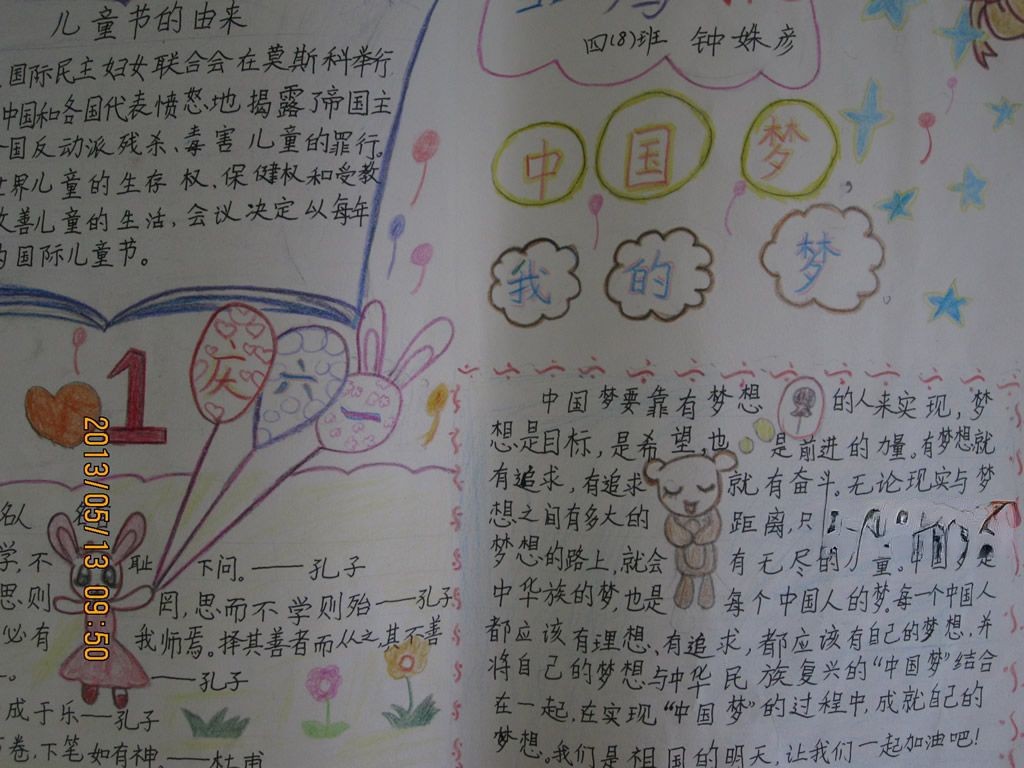 儿童节的由来
国际民主妇女联合会在莫斯科举行
中国和各国代表愤怒地揭露了帝国主
国反动派残杀、毒害儿童的罪行。
世界儿童的生存权、保健权和受教
改善儿童的生活,会议决定以每年
的国际儿童节。
四(8)班 钟姝彦
中国梦
我的梦
1
庆六一
2013/05/13 09:50
名人名
学,不耻下问。——孔子
思则罔,思而不学则殆——孔子
必有我师焉。择其善者而从之,其不善
——孔子
成于乐——孔子
卷,下笔如有神。——杜甫
中国梦要靠有梦想的人来实现,梦
想是目标,是希望,也是前进的力量。有梦想就
有追求,有追求就有奋斗。无论现实与梦
想之间有多大的距离,只
梦想的路上,就会有无尽的力量。中国梦是
中华族的梦,也是每个中国人的梦。每一个中国人
都应该有理想、有追求,都应该有自己的梦想,并
将自己的梦想与中华民族复兴的“中国梦”结合
在一起,在实现“中国梦”的过程中,成就自己的
梦想。我们是祖国的明天,让我们一起加油吧!